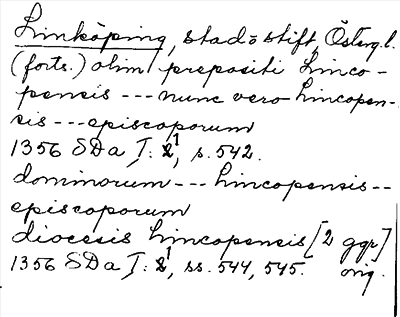 Linköping, stad o stift, Östergl.
(forts.) olim prepositi Linco-
pensis --- nunc vero lincopen-
sis --- episcoporum
1356 SDa I: 1, s. 542.
dominorum --- lincopensis --
episcoporum
diocesis lincopensis [2 ggr]
1356 SDa I: 1, ss. 544, 545. orig.